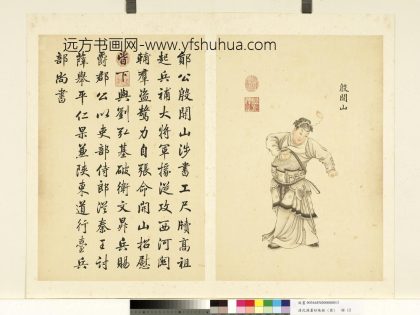 远方书画网-www.yfshuhua.com
殷開山
鄖公殷開山涉書工尺牘高祖
起兵補大將軍掾從攻西河關
輔羣盜驁力自張命開山招慰
皆下與劉弘基破衛文昇兵賜
爵郡公以吏部侍郎從秦王討
薛舉平仁杲兼陝東道行臺兵
部尚書